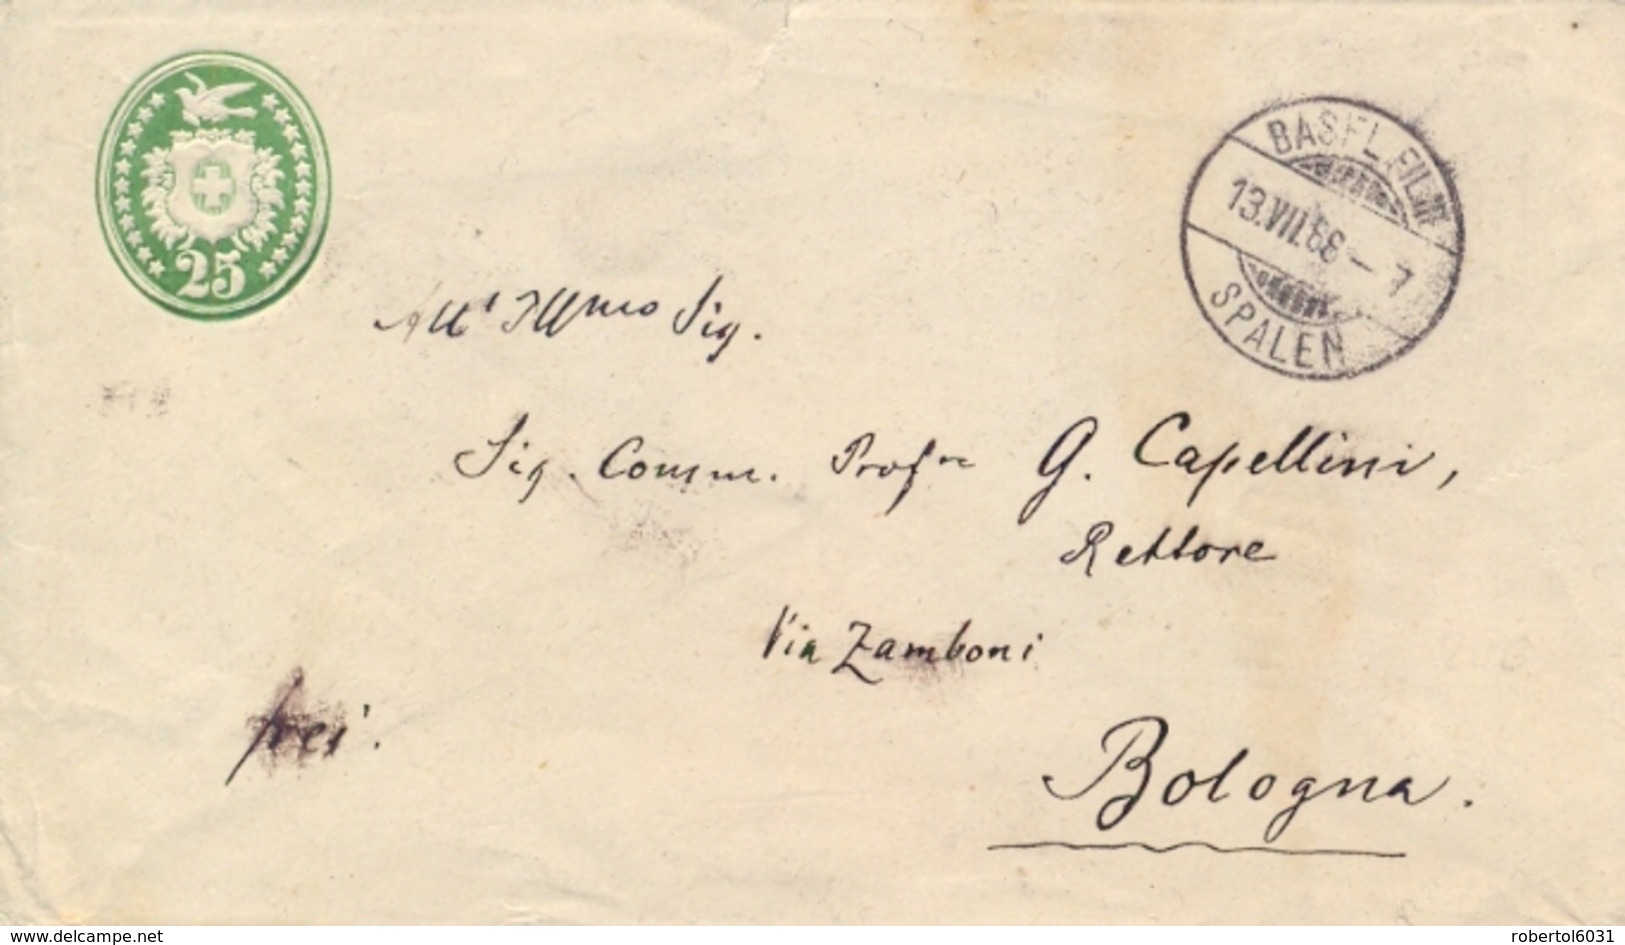 25
BASEL.FIL.
13.VII.88-7
SPALEN
All' Illmo Sig.
Sig. Comm. Profre G. Capellini,
Rettore
Via Zamboni
frei.
Bologna.
www.delcampe.net
robertol6031